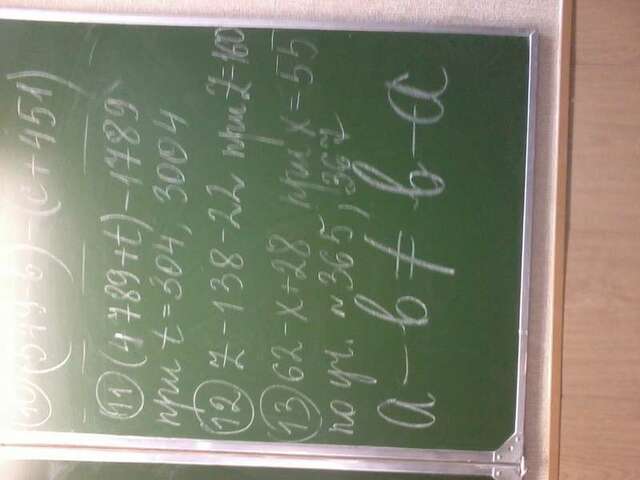 (10) (549-b)-(c+451)
(11) (4789+t)-1789
при t=304, 3004
(12) z-138-22 при z=160
(13) 62-x+28 при x=55
по уч. №365, 367
a-b≠b-a